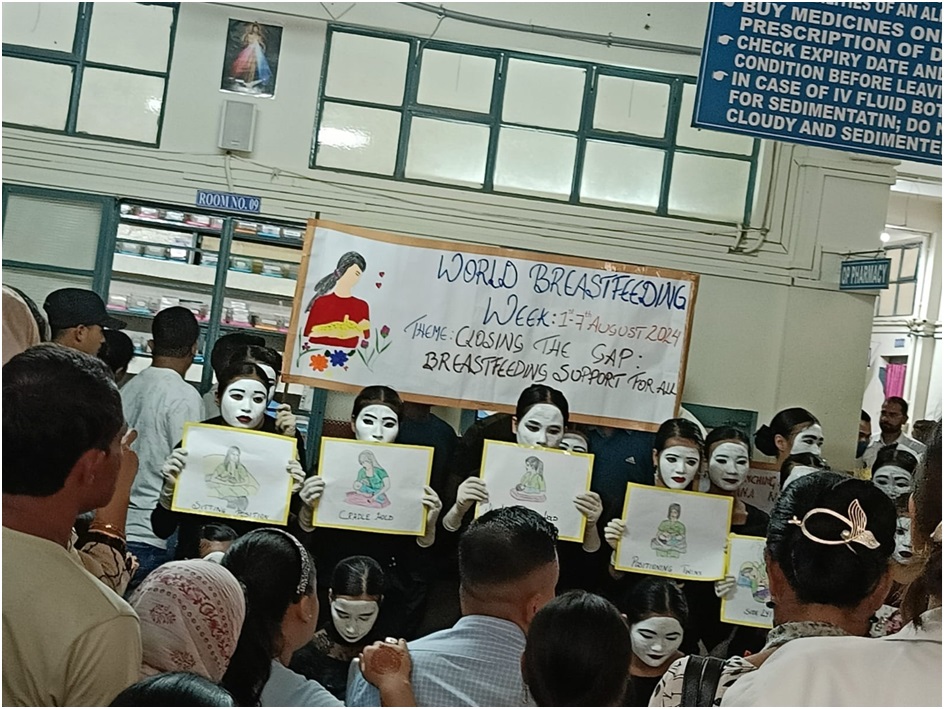 BUY MEDICINES ON
PRESCRIPTION OF D
CHECK EXPIRY DATE AND
CONDITION BEFORE LEAVI
IN CASE OF IV FLUID BOT
FOR SEDIMENTATIN; DO N
CLOUDY AND SEDIMENTE
ROOM NO. 09
OP PHARMACY
WORLD BREASTFEEDING
WEEK: 1st-7th AUGUST 2024
THEME: CLOSING THE GAP.
BREASTFEEDING SUPPORT FOR ALL
SITTING POSITION
CRADLE HOLD
POSITIONING TWINS
SIDE LY